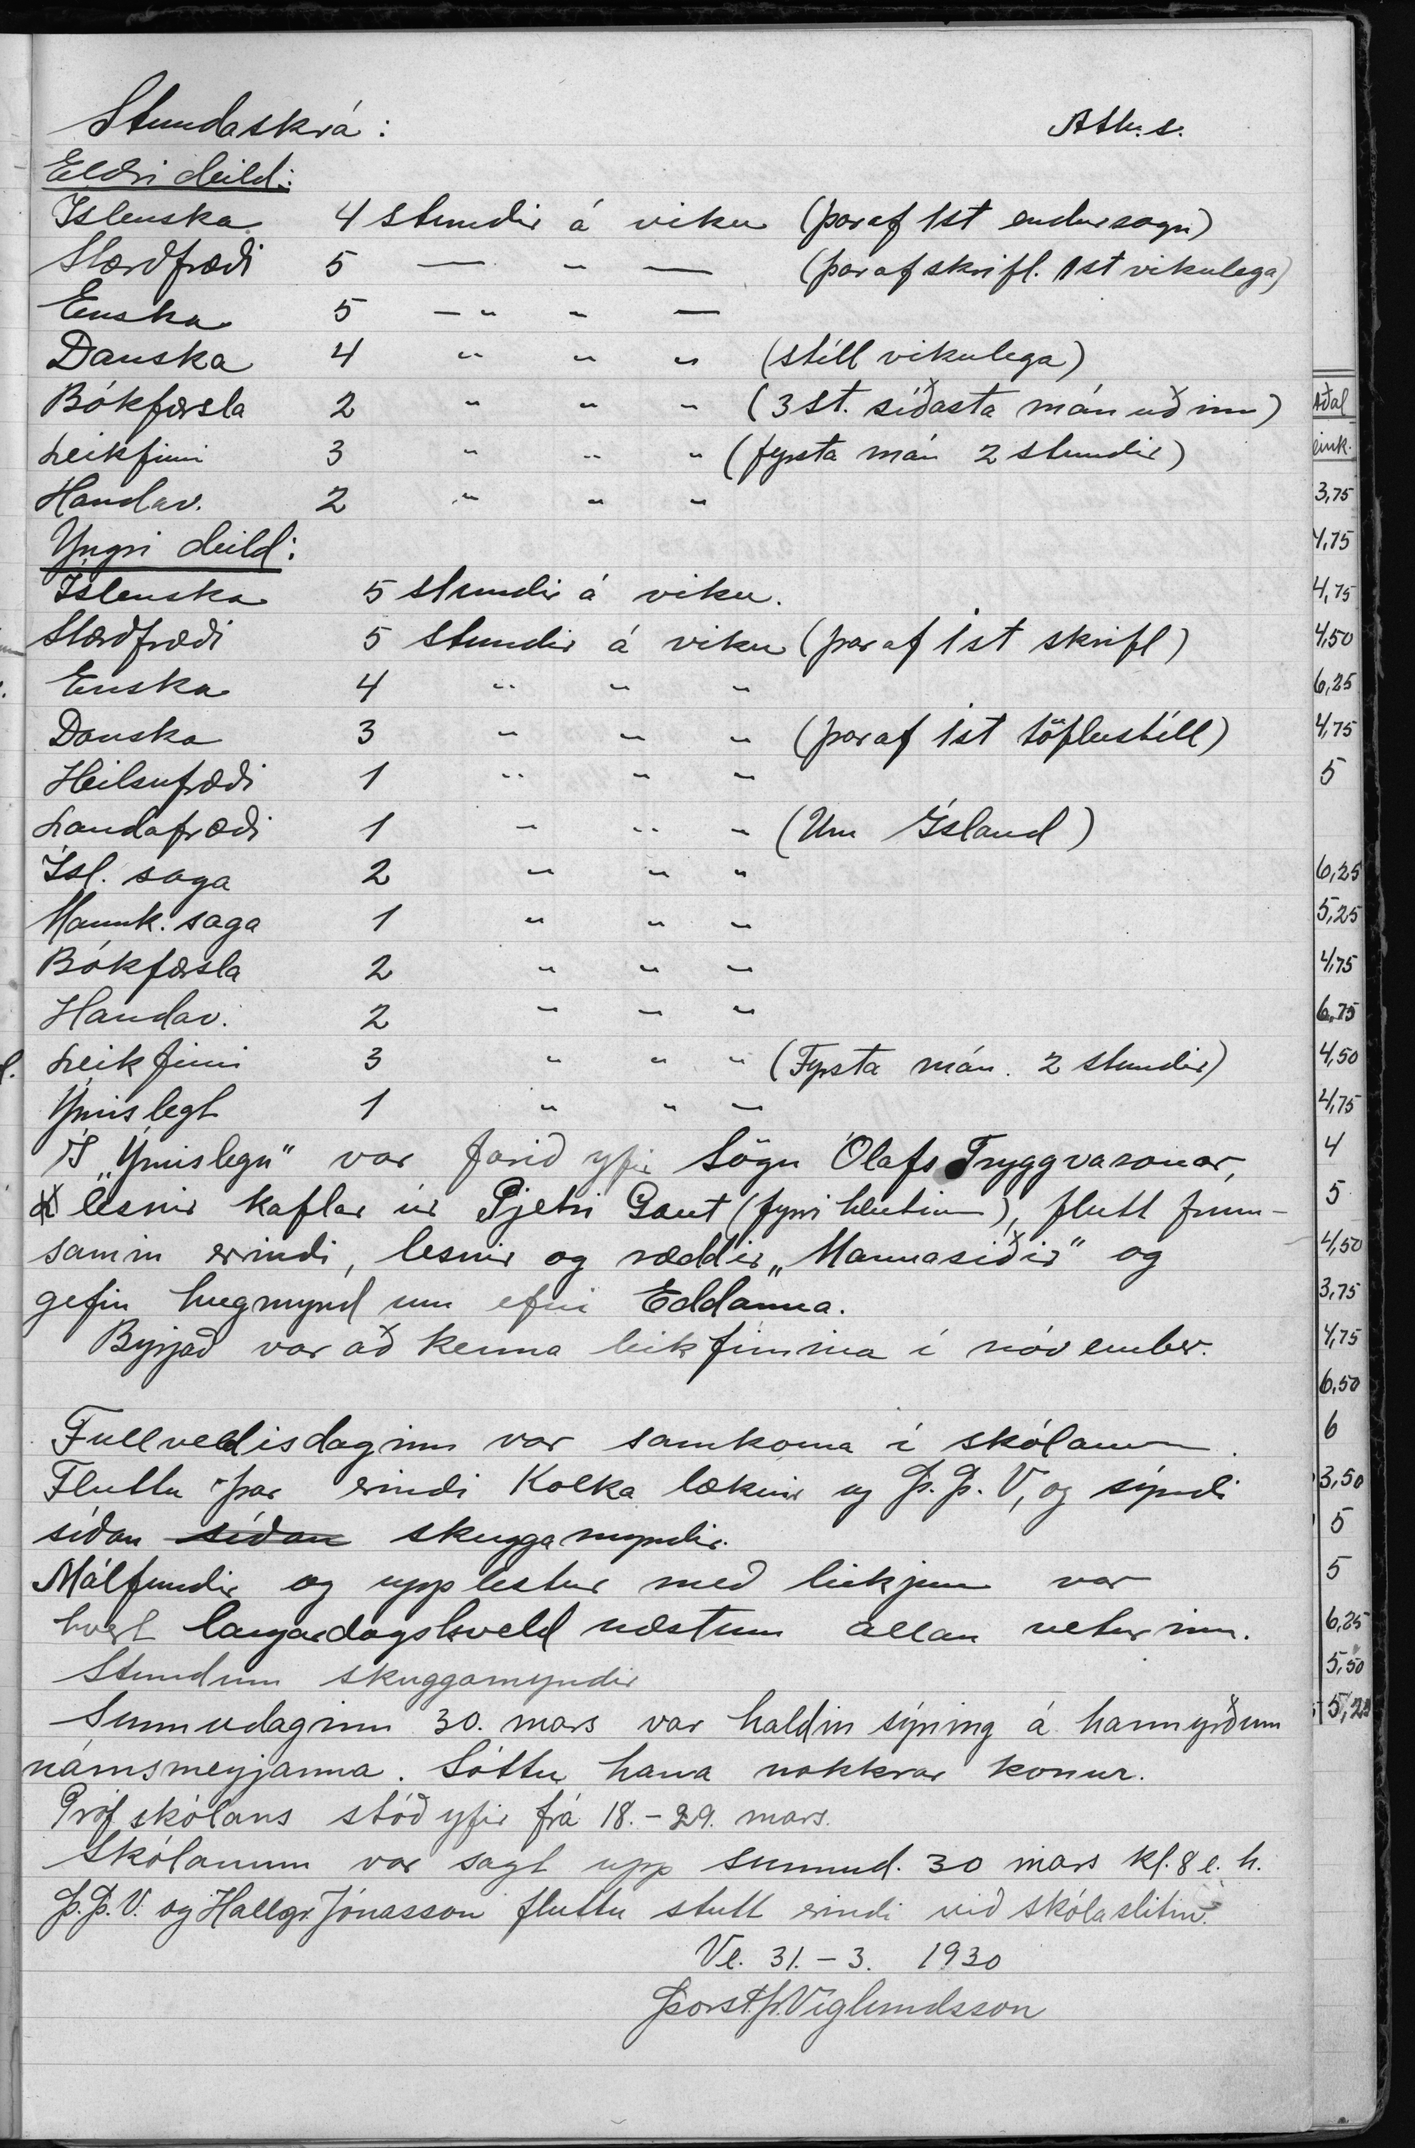 Stundaskrá: Ath.s.
Eldri deild:
Íslenska 4 stundir á viku (þar af 1st endursögn)
Stærðfræði 5 — „ — (þar af skrifl. 1st vikulega)
Enska 5 — „ „ —
Danska 4 „ „ „ (stíll vikulega)
Bókfærsla 2 „ „ „ (3 st. síðasta mánuðinn)
Leikfimi 3 „ „ „ (fyrsta mán 2 stundir)
Handav. 2 „ „ „
Yngri deild:
Íslenska 5 stundir á viku.
Stærðfræði 5 stundir á viku (þar af 1st skrifl)
Enska 4 „ „ „
Danska 3 „ „ „ (þar af 1st töflustíll)
Heilsufræði 1 „ „ „
Landafræði 1 „ „ „ (Um Ísland)
Ísl. saga 2 „ „ „
Mannk. saga 1 „ „ „
Bókfærsla 2 „ „ „
Handav. 2 „ „ „
Leikfimi 3 „ „ „ (Fyrsta mán. 2 stundir)
Ýmislegt 1 „ „ „
Í „Ýmislegu“ var farið yfir Sögu Ólafs Tryggvasonar,
lesnir kaflar úr Pjetri Gaut (fyrri hlutinn), flutt frum-
samin erindi, lesnir og ræddir „Mannasiðir“ og
gefin hugmynd um efni Eddanna.
Byrjað var að kenna leikfimina í nóvember.
Fullveldisdaginn var samkoma í skólanum.
Fluttu þar erindi Kolka læknir og Þ.Þ.V, og sýndi
síðan síðan skuggamyndir.
Málfundir og upplestur með leikjum var
hvert laugardagskveld næstum allan veturinn.
Stundum skuggamyndir
Sunnudaginn 30. mars var haldin sýning á hannyrðum
námsmeyjanna. Sóttu hana nokkrar konur.
Próf skólans stóð yfir frá 18.-29. mars.
Skólanum var sagt upp sunnud. 30 mars kl. 8 e. h.
Þ.Þ.V. og Hallgr. Jónasson fluttu stutt erindi við skólaslitin.
Ve. 31.-3. 1930
Þorst. Þ. Víglundsson
Aðal
eink.
3,75
4,75
4,75
4,50
6,25
4,75
5
6,25
5,25
4,75
6,75
4,50
4,75
4
5
4,50
3,75
4,75
6,50
6
3,50
5
5
6,25
5,50